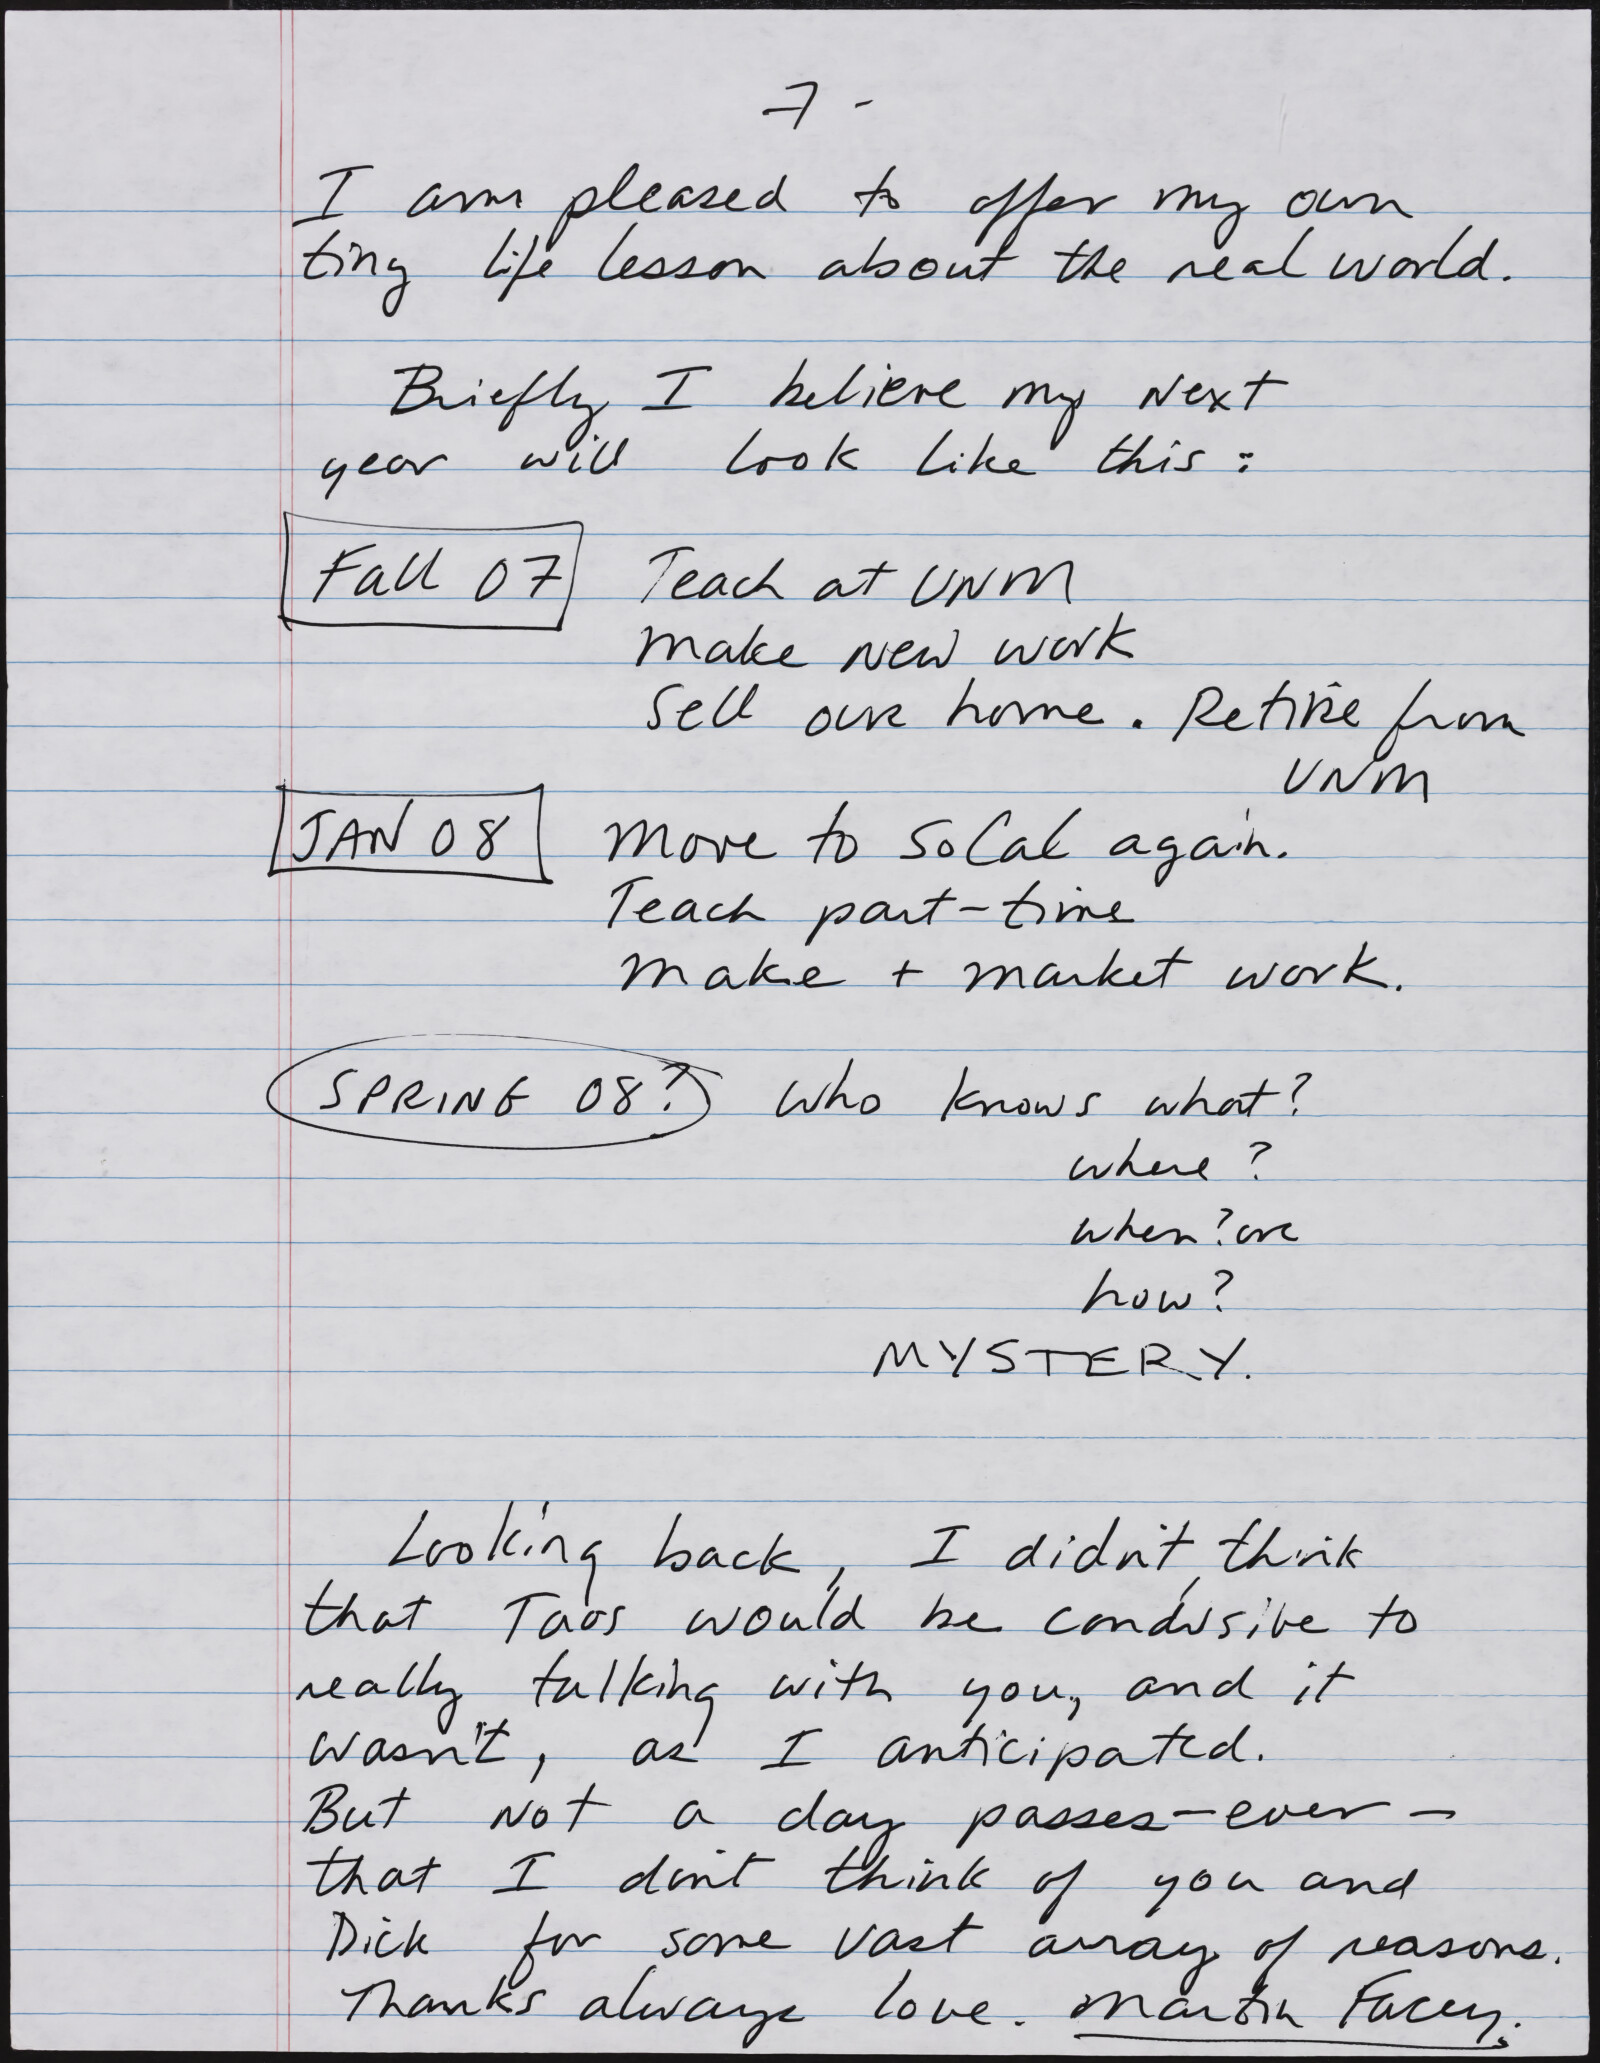 7 -
I am pleased to offer my own
tiny life lesson about the real world.
Briefly I believe my next
year will look like this:
Fall 07 Teach at UNM
make new work
Sell our home. Retire from
UNM
JAN 08 Move to SoCal again.
Teach part-time
make + market work.
SPRING 08? Who knows what?
where?
when? or
how?
MYSTERY.
Looking back, I didn't think
that Taos would be condusive to
really talking with you, and it
wasn't, as I anticipated.
But not a day passes - ever -
that I don't think of you and
Dick for some vast array of reasons.
Thanks always love. Martin Facey.